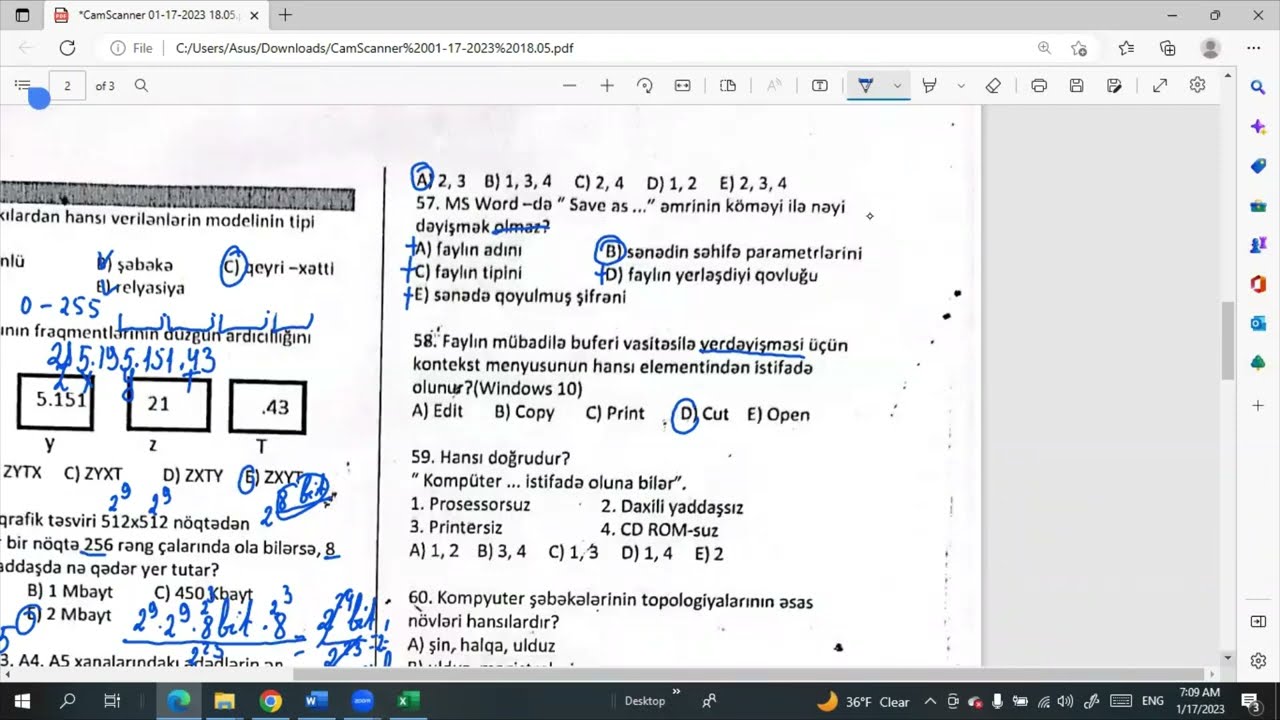 *CamScanner 01-17-2023 18.05.
File C:/Users/Asus/Downloads/CamScanner%2001-17-2023%2018.05.pdf
2 of 3
kılardan hansı verilənlərin modelinin tipi
nlü B) şəbəkə C) qeyri –xətti
E) relyasiya
0 - 255
ının fraqmentlərinin düzgün ardıcıllığını
215.195.151.43
5.151 21 .43
y z T
ZYTX C) ZYXT D) ZXTY E) ZXYT
2⁹ 2⁹ 2 8 bit
qrafik təsviri 512x512 nöqtədən
bir nöqtə 256 rəng çalarında ola bilərsə, 8
addaşda nə qədər yer tutar?
B) 1 Mbayt C) 450 Kbayt
E) 2 Mbayt
2⁹ . 2⁹ . 8 bit . 8
3. A4. A5 xanalarındakı ədədlərin ən
A) 2, 3 B) 1, 3, 4 C) 2, 4 D) 1, 2 E) 2, 3, 4
57. MS Word –də “ Save as ...” əmrinin köməyi ilə nəyi
dəyişmək olmaz?
A) faylın adını B) sənədin səhifə parametrlərini
C) faylın tipini D) faylın yerləşdiyi qovluğu
E) sənədə qoyulmuş şifrəni
58. Faylın mübadilə buferi vasitəsilə yerdəyişməsi üçün
kontekst menyusunun hansı elementindən istifadə
olunur?(Windows 10)
A) Edit B) Copy C) Print D) Cut E) Open
59. Hansı doğrudur?
“ Kompüter ... istifadə oluna bilər”.
1. Prosessorsuz 2. Daxili yaddaşsız
3. Printersiz 4. CD ROM-suz
A) 1, 2 B) 3, 4 C) 1, 3 D) 1, 4 E) 2
60. Kompyuter şəbəkələrinin topologiyalarının əsas
növləri hansılardır?
A) şin, halqa, ulduz
Desktop 36°F Clear ENG 7:09 AM
1/17/2023